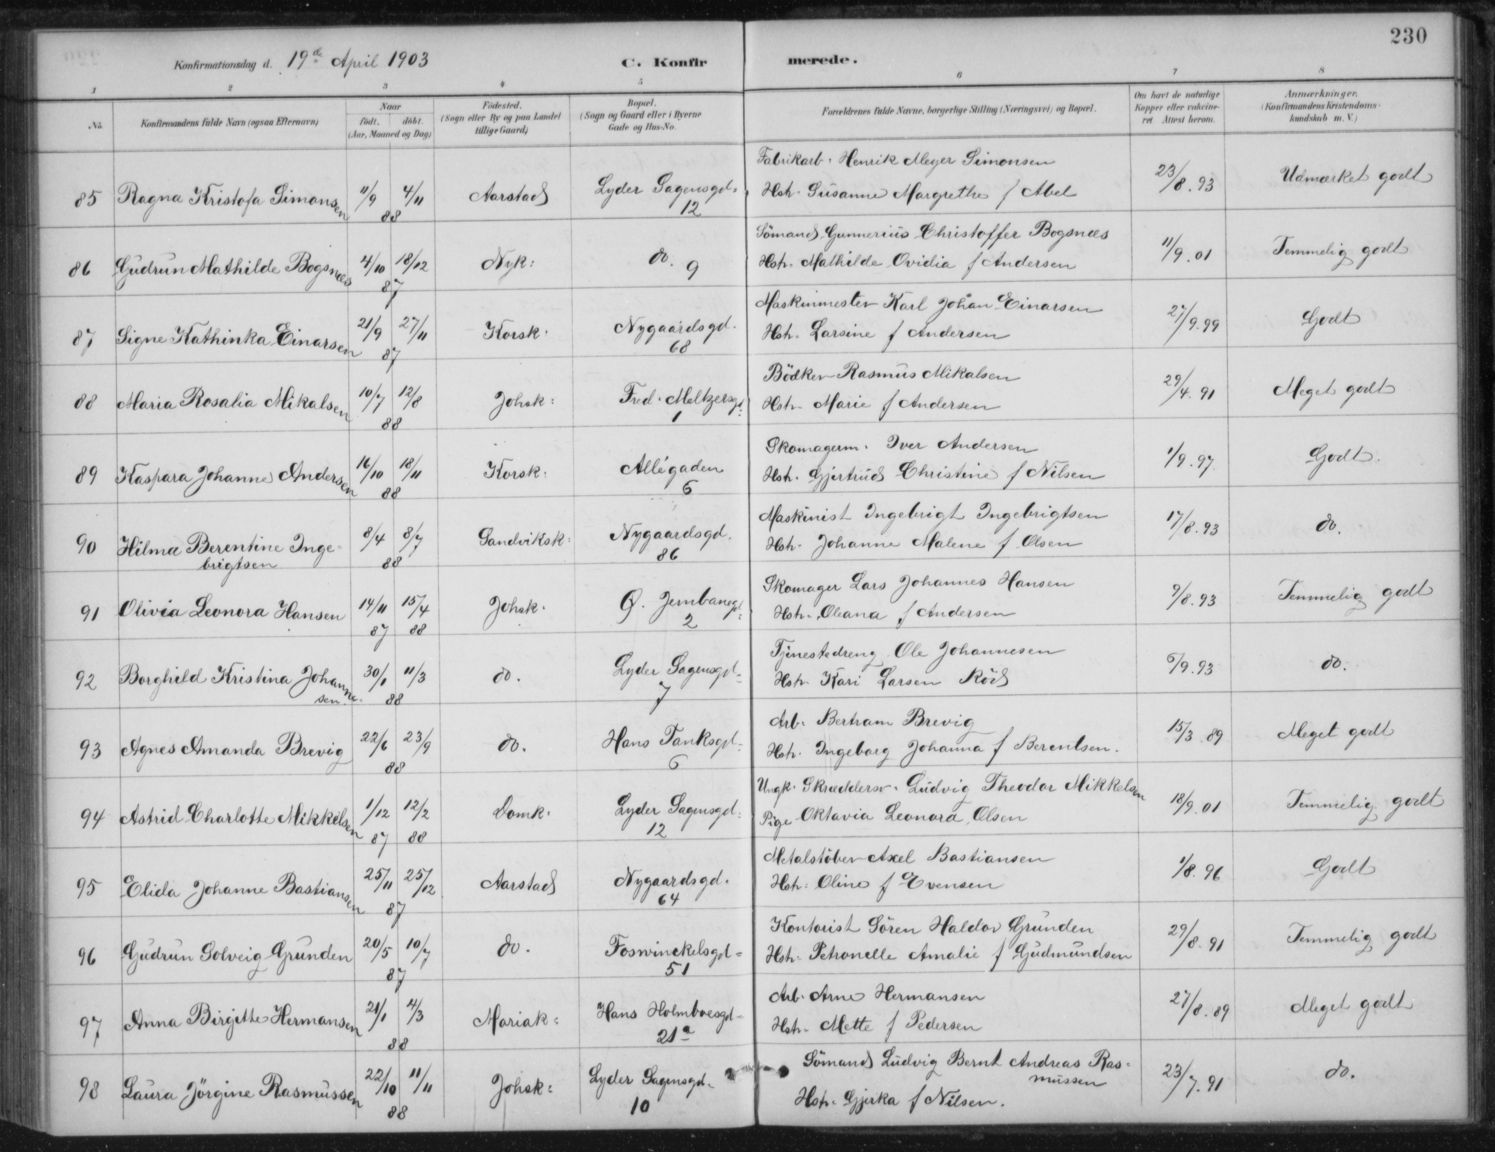 230
Konfirmationsdag d. 19de April 1903 C. Konfirmerede.
1 2 3 4 5 6 7 8
No. Konfirmandens fulde Navn (ogsaa Efternavn) Naar født. døbt. (Aar, Maaned og Dag) Fødested. (Sogn eller By og paa Landet tillige Gaard) Bopæl. (Sogn og Gaard eller i Byerne Gade og Hus-No. Forældrenes fulde Navne, borgerlige Stilling (Næringsvei) og Bopæl. Om havt de naturlige Kopper eller vaccineret. Attest herom. Anmærkninger. (Konfirmandens Kristendomskundskab m. V.)
85 Ragna Kristofa Simonsen 11/9 4/11 88 Aarstad Lyder Sagensgd. 12 Fabrikarb. Henrik Meyer Simonsen 23/8.93 Udmærket godt
Hstr. Susanne Margrethe f Abel
86 Gudrun Mathilde Bogsnæs 4/10 18/12 87 Nyk: do. 9 Sömand Gunnerius Christoffer Bogsnæs 11/9.01 Temmelig godt
Hstr. Mathilde Ovidia f Andersen
87 Signe Kathinka Einarsen 21/9 27/11 87 Korsk. Nygaardsgd. 68 Maskinmester Karl Johan Einarsen 27/9.99 Godt
Hstr. Larsine f Andersen
88 Maria Rosalia Mikalsen 10/7 12/8 88 Johsk: Fred. Meltzersgd: 1 Bödker Rasmus Mikalsen 29/4.91 Meget godt
Hstr. Marie f Andersen
89 Kaspara Johanne Andersen 16/10 18/11 88 Korsk. Allégaden 6 Skomagerm. Iver Andersen 1/9.97 Godt.
Hstr. Gjertrud Christine f Nilsen
90 Hilma Berentine Ingebrigtsen 8/4 8/7 88 Sandviksk: Nygaardsgd. 86 Maskinist Ingebrigt Ingebrigtsen 17/8.93 do.
Hstr. Johanne Malene f. Olsen
91 Olivia Leonora Hansen 14/11 87 15/4 88 Johsk. Ø. Jernbanegd: 2 Skomager Lars Johannes Hansen 9/8.93 Temmelig godt
Hstr. Oleana f Andersen
92 Borghild Kristina Johannesen 30/1 11/3 88 do. Lyder Sagensgd. 7 Tjenestedreng Ole Johannesen 6/9.93 do.
Hstr. Kari Larsen Röd
93 Agnes Amanda Brevig 22/6 23/9 88 do. Hans Tanksgd. 6 Arb. Bertram Brevig 15/3.89 Meget godt
Hstr. Ingeborg Johanna f Berentsen.
94 Astrid Charlotte Mikkelsen 1/12 87 12/2 88 Domk. Lyder Sagensgd: 12 Ungk. Skræddersv. Ludvig Theodor Mikkelsen 18/9.01 Temmelig godt
Pige Oktavia Leonora Olsen
95 Elida Johanne Bastiansen 25/11 25/12 87 Aarstad Nygaardsgd. 64 Metalstöber Axel Bastiansen 1/8.96 Godt
Hstr. Oline f Evensen
96 Gudrun Solveig Grunden 20/5 10/7 87 do. Foswinckelsgd. 51 Kontorist Sören Haldor Grunden 29/8.91 Temmelig godt
Hstr. Petronelle Amalie f Gudmundsen
97 Anna Birgitte Hermansen 21/1 4/3 88 Mariak: Hans Holmboesgd. 21a Arb. Arne Hermansen 27/8.89 Meget godt
Hstr. Mette f Pedersen
98 Laura Jörgine Rasmussen 22/10 11/11 88 Johsk: Lyder Sagensgd. 10 Sömand Ludvig Bernt Andreas Rasmussen 23/7.91 do.
Hstr. Gjerka f Nilsen.